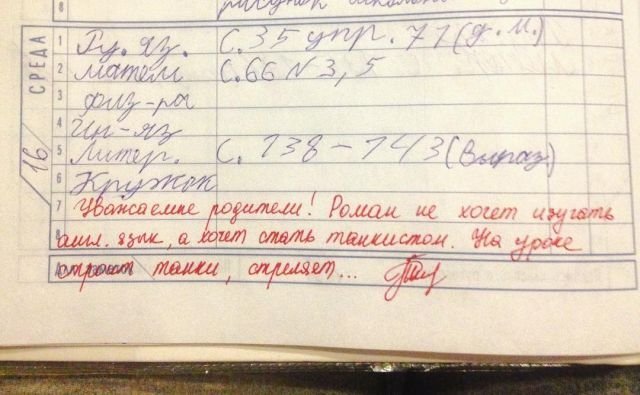 8 рисунок
СРЕДА
16
1 Ру. яз. С. 35 упр. 71 (д. м.)
2 матем С. 66 N 3, 5
3 физ-ра
4 Ин-яз
5 Литер. С. 138 - 143 (Выраз.)
6 Кружок
7 Уважаемые родители! Роман не хочет изучать
8 англ. язык, а хочет стать танкистом. На уроке
строит танки, стреляет...